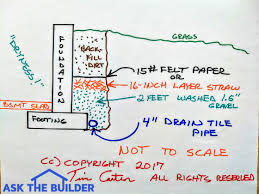 GRASS
"DRYNESS!"
FOUNDATION
BACK-
FILL
DIRT
15# FELT PAPER
OR
16-INCH LAYER STRAW
2 FEET WASHED 1.5"
GRAVEL
BSMT SLAB
FOOTING
4" DRAIN TILE
PIPE
NOT TO SCALE
(C) COPYRIGHT 2017
Tim Carter ALL RIGHTS RESERVED
ASK THE BUILDER